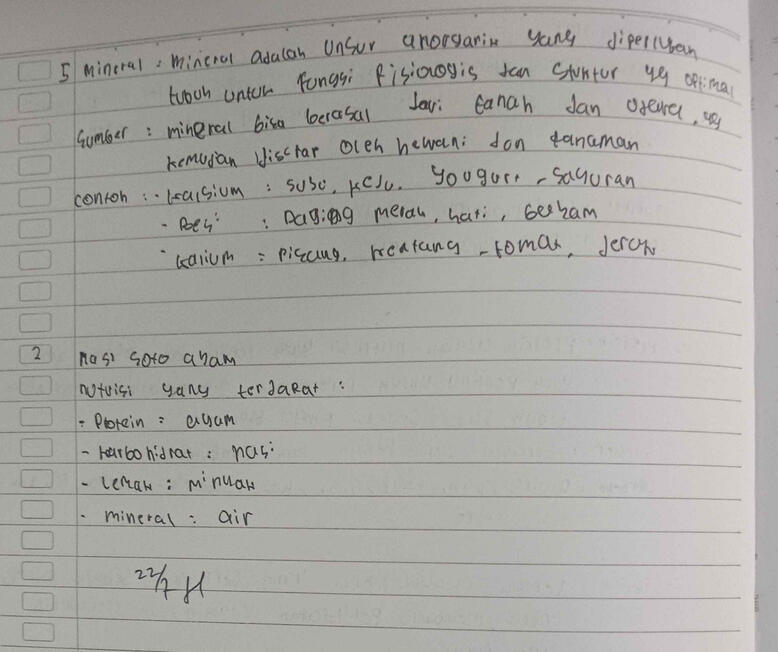 5 Mineral : Mineral adalah unsur anorganik yang diperlukan
tubuh untuk fungsi fisiologis dan stuktur yg optimal
Sumber : mineral bisa berasal dari tanah dan udara, yg
kemudian diserap oleh hewani dan tanaman
contoh : - kalsium : susu, keju, yougurt, sayuran
- Besi : Daging merah, hati, Berham
- kalium : Pisang, kentang, tomat, Jeruk
2 nasi soto ayam
nutrisi yang terdapat :
- Protein : ayam
- karbohidrat : nasi
- lemak : minyak
- mineral : air
22/7